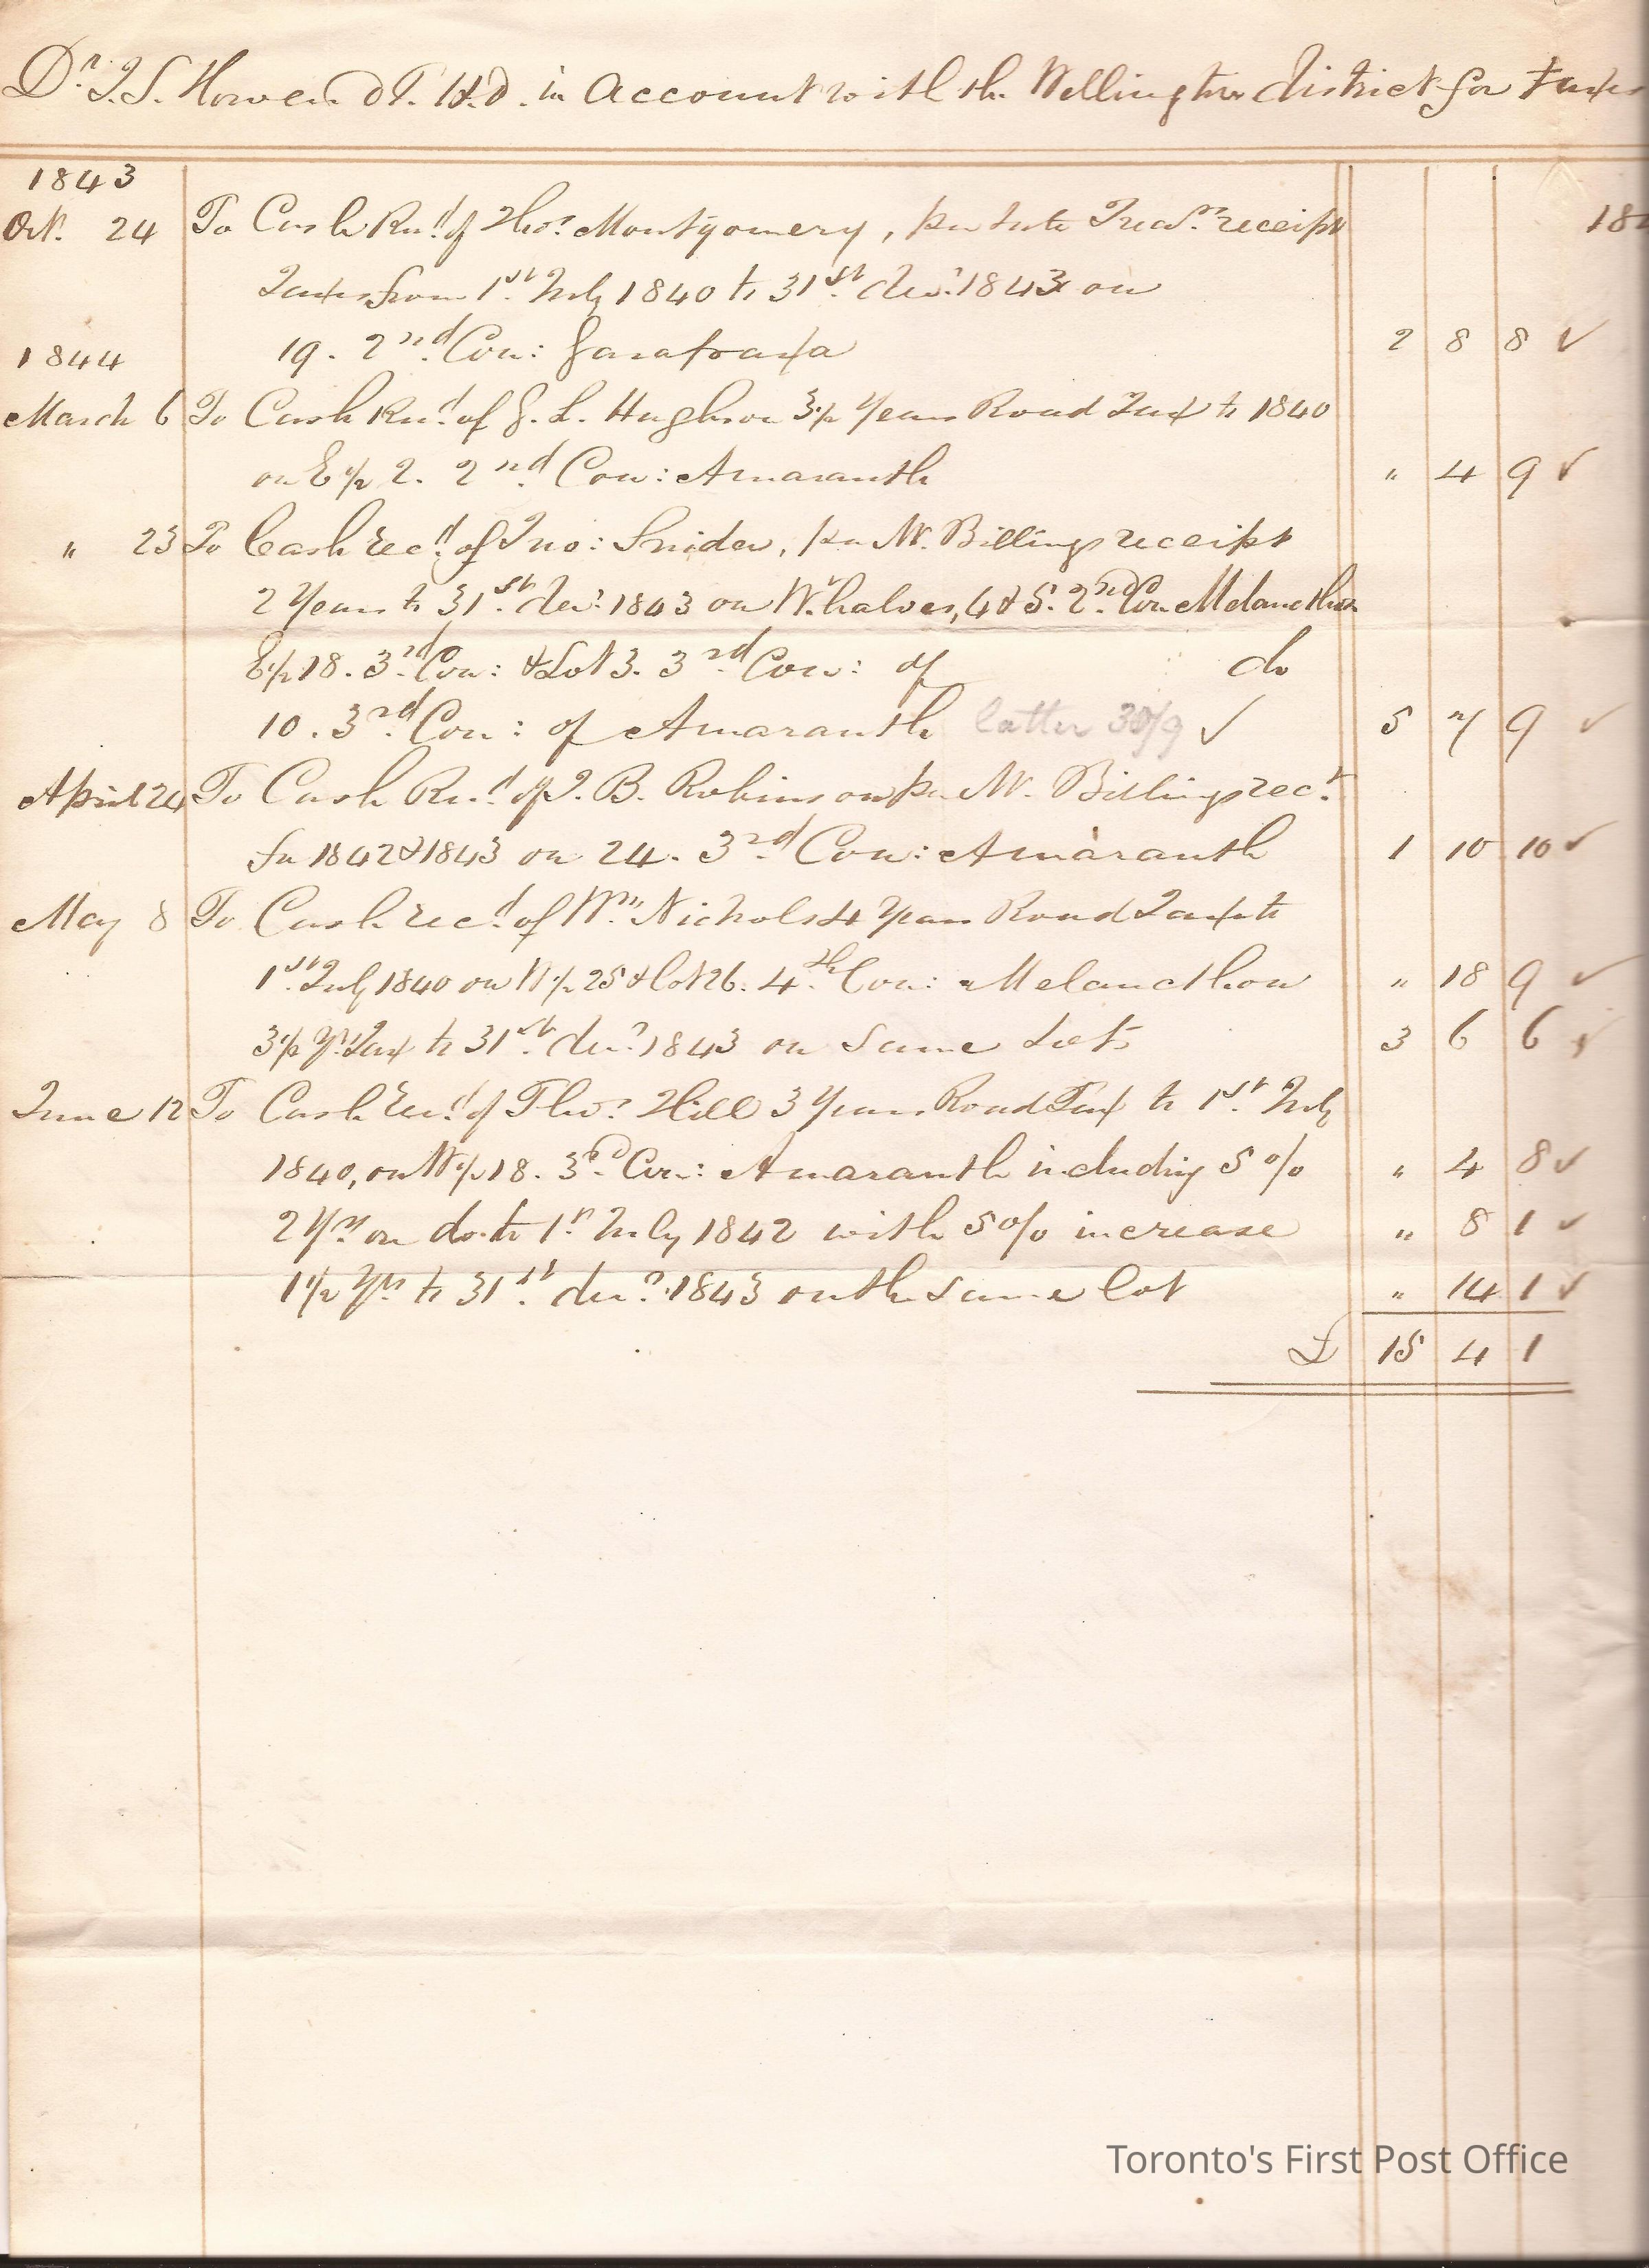 Dr. J. S. Howard T. H. D. in Account with the Wellington District for Taxes
1843
Oct. 24 To Cash Recd. of Thos. Montgomery, per late Treasrs. receipt
Taxes from 1st. July 1840 to 31st. decr. 1843 on
19. 2nd. Con: Garafraxa 2 8 8 ✓
1844
March 6 To Cash Recd. of G. L. Hughson 3½ Years Road Tax to 1840
on E ½ 2. 2nd. Con: Amaranth " 4 9 ✓
" 23 To Cash recd. of Jno: Snider, per W. Billings receipt
2 Years to 31st. decr. 1843 on W. halves, 4 & 5. 2nd. Con Melancthon
E ½ 18. 3rd. Con: & Lot 3. 3rd Con: of do
10. 3rd. Con: of Amaranth latter ✓ 5 7 9 ✓
April 24 To Cash Recd. of J. B. Robinson per W. Billings rect.
for 1842 & 1843 on 24. 3rd. Con: Amaranth 1 10 10 ✓
May 8 To Cash recd. of Wm. Nichols 4 Years Road Tax to
1st. July 1840 on W ½ 25 & lot 26. 4th. Con: Melancthon " 18 9 ✓
3½ Yrs. Tax to 31st. decr. 1843 on Same Lots 3 6 6 ✓
June 12 To Cash Recd. of Thos. Hill 3 Years Road Tax to 1st. July
1840, on W ½ 18. 3rd. Con: Amaranth including 5 % " 4 8 ✓
2 Yrs. on do. to 1st. July 1842 with 5 % increase " 8 1 ✓
1½ Yrs. to 31st. decr. 1843 on the Same lot " 14 1 ✓
£ 15 4 1
Toronto's First Post Office